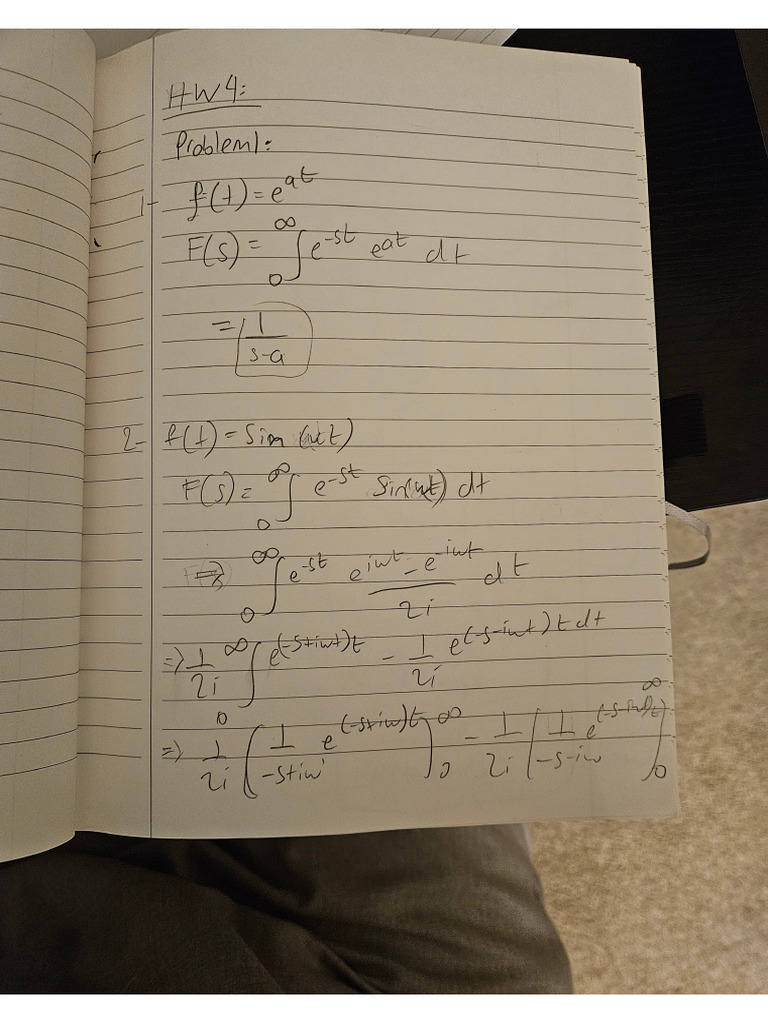 HW4:
Problem 1:
1- f(t) = e^at
F(s) = ∫₀^∞ e^-st e^at dt
= 1/(s-a)
2- f(t) = Sin(wt)
F(s) = ∫₀^∞ e^-st Sin(wt) dt
=> ∫₀^∞ e^-st (e^iwt - e^-iwt)/2i dt
=> 1/2i ∫₀^∞ e^(-s+iwt)t - 1/2i e^(-s-iwt)t dt
=> 1/2i (1/(-s+iw) e^(-s+iw)t)₀^∞ - 1/2i (1/(-s-iw) e^(-s-iw)t)₀^∞